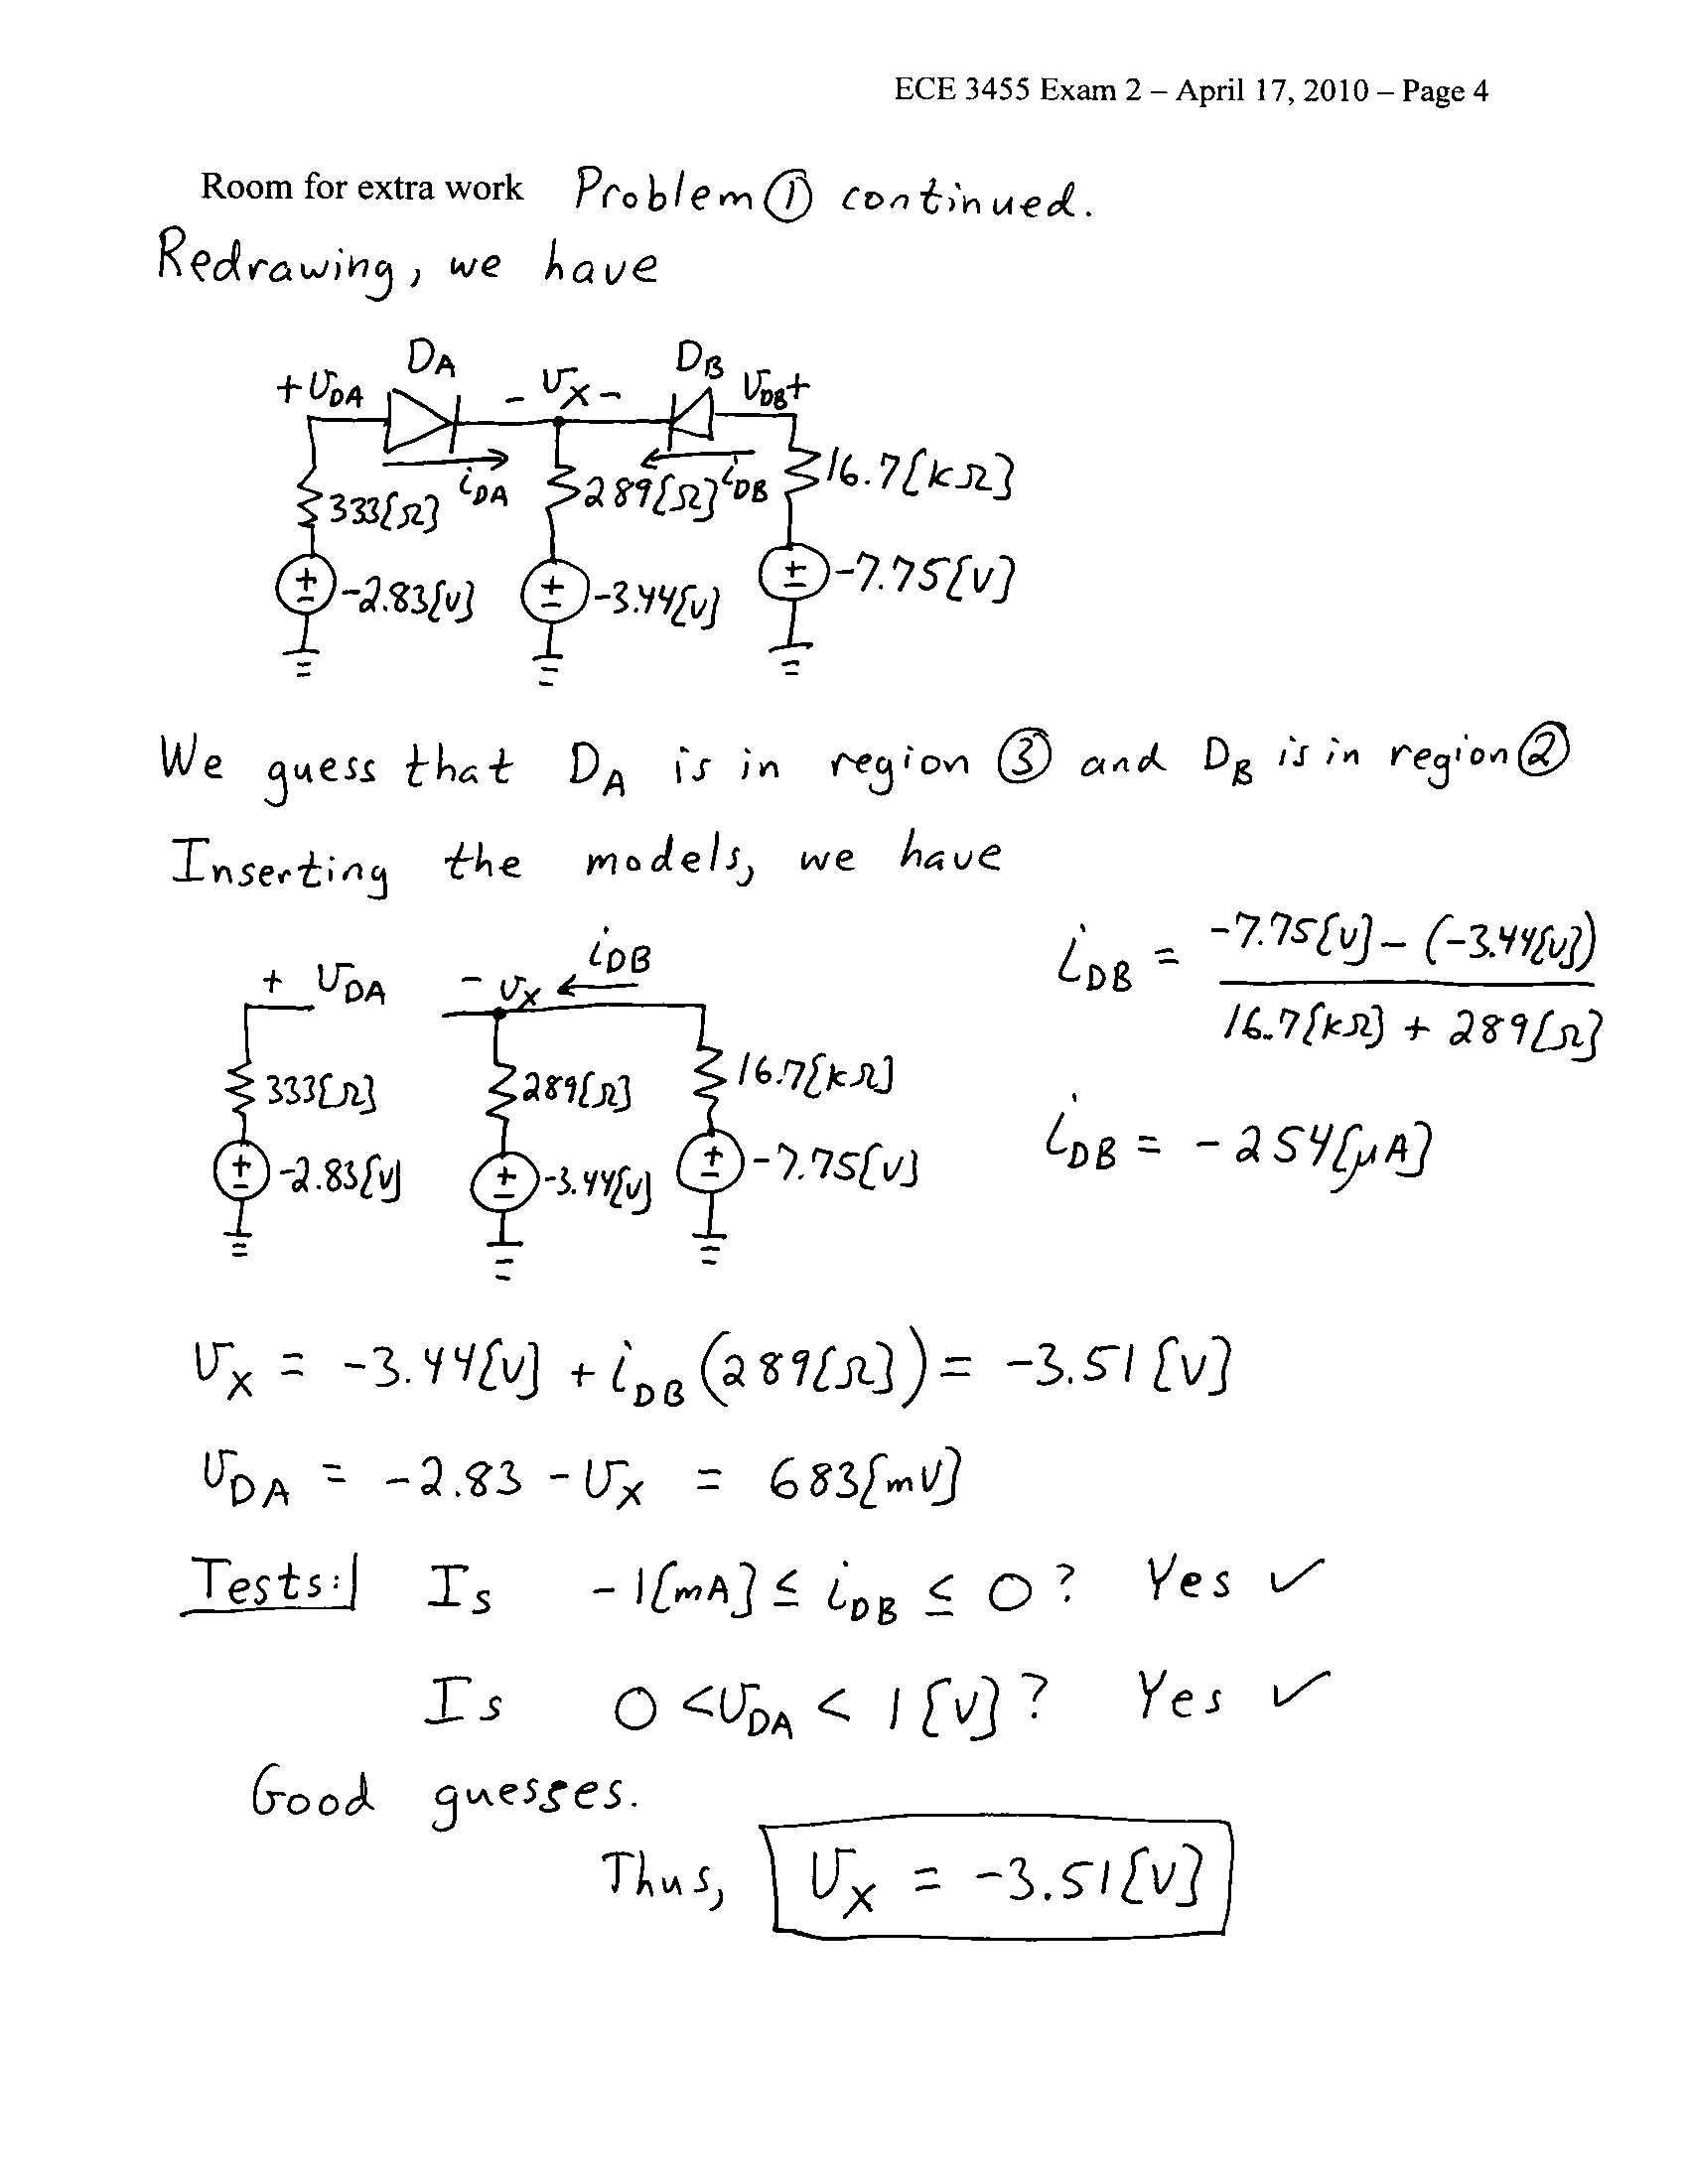 ECE 3455 Exam 2 – April 17, 2010 – Page 4
Room for extra work Problem ① continued.
Redrawing, we have
DA DB
+ vDA - vX - vDB +
iDA iDB
333[Ω] 289[Ω] 16.7[kΩ]
-2.83[V] -3.44[V] -7.75[V]
We guess that DA is in region ③ and DB is in region ②
Inserting the models, we have
+ vDA - vX iDB
333[Ω] 289[Ω] 16.7[kΩ]
-2.83[V] -3.44[V] -7.75[V]
iDB = -7.75[V] - (-3.44[V])
16.7[kΩ] + 289[Ω]
iDB = -254[μA]
vX = -3.44[V] + iDB (289[Ω]) = -3.51[V]
vDA = -2.83 - vX = 683[mV]
Tests: Is -1[mA] ≤ iDB ≤ 0? Yes ✓
Is 0 < vDA < 1[V]? Yes ✓
Good guesses.
Thus, vX = -3.51[V]